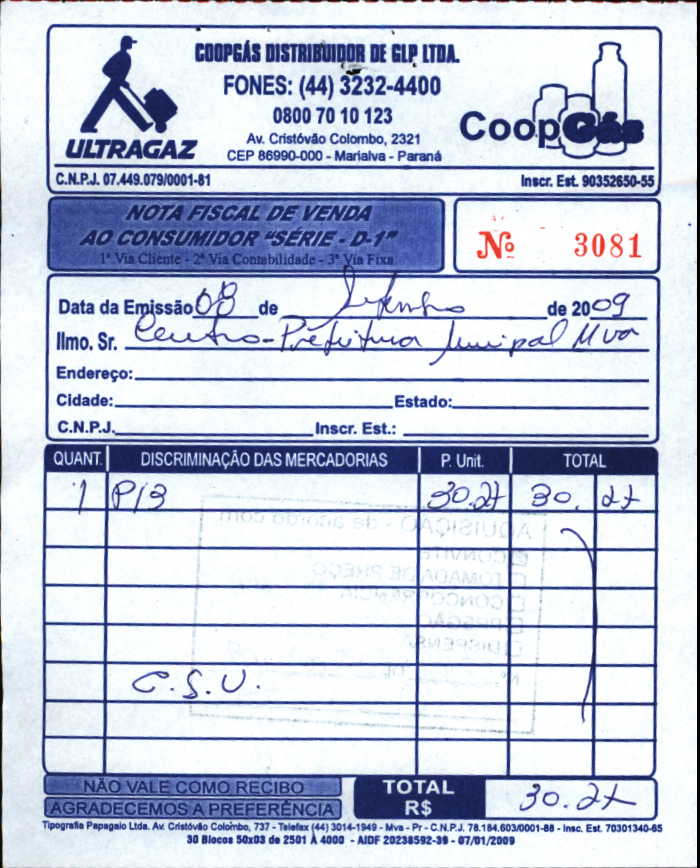 COOPGÁS DISTRIBUIDOR DE GLP LTDA.
FONES: (44) 3232-4400
0800 70 10 123
Av. Cristóvão Colombo, 2321
CEP 86990-000 - Marialva - Paraná
ULTRAGAZ
CoopGás
C.N.P.J. 07.449.079/0001-81 Inscr. Est. 90352650-55
NOTA FISCAL DE VENDA
AO CONSUMIDOR "SÉRIE - D-1"
1ª Via Cliente - 2ª Via Contabilidade - 3ª Via Fixa
Nº 3081
Data da Emissão 08 de Setembro de 2009
Ilmo. Sr. Centro - Prefeitura Municipal Mva
Endereço:
Cidade: Estado:
C.N.P.J. Inscr. Est.:
QUANT. DISCRIMINAÇÃO DAS MERCADORIAS P. Unit. TOTAL
1 P13 30.27 30. 27
AQUISIÇÃO - de acordo com
CONVITE
TOMADA DE PREÇO
CONCORRÊNCIA
PREGÃO
DISPENSA
C.S.U.
NÃO VALE COMO RECIBO
AGRADECEMOS A PREFERÊNCIA
TOTAL
R$ 30.27
Tipografia Papagaio Ltda. Av. Cristóvão Colombo, 737 - Telefax (44) 3014-1949 - Mva - Pr - C.N.P.J. 78.184.603/0001-88 - Insc. Est. 70301340-65
30 Blocos 50x03 de 2501 À 4000 - AIDF 20238592-39 - 07/01/2009